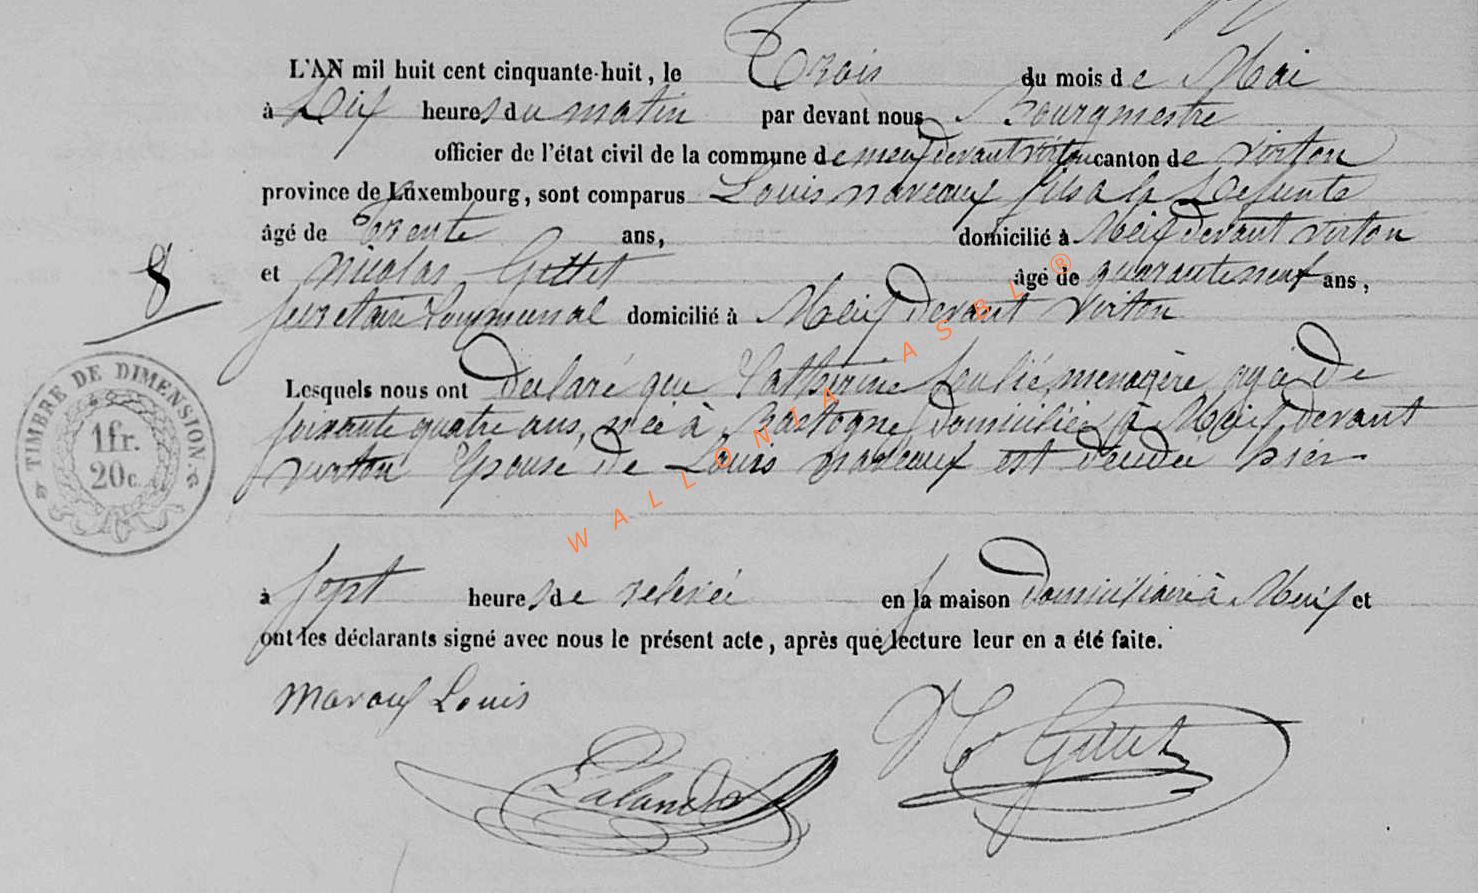 L'AN mil huit cent cinquante-huit, le Trois du mois de Mai
à Dix heures du matin par devant nous Bourgmestre
officier de l'état civil de la commune de meix devant virton canton de virton
province de Luxembourg, sont comparus Louis maraux fils à la Defunte
âgé de trente ans, domicilié à Meix devant virton
et Nicolas Gillet âgé de quarante neuf ans,
secretaire Communal domicilié à Meix Devant virton
8
Lesquels nous ont Declaré que Catherine menagère agé De
soixante quatre ans, née à Bastogne Domiciliée à Meix devant
virton Epouse De Louis maraux est décédée hier
TIMBRE DE DIMENSION.
1 fr.
20 c.
à sept heures de relevée en la maison Domiciliaire à Meix et
ont les déclarants signé avec nous le présent acte, après que lecture leur en a été faite.
Maraux Louis
N Gillet
WALLONIA ASBL ®